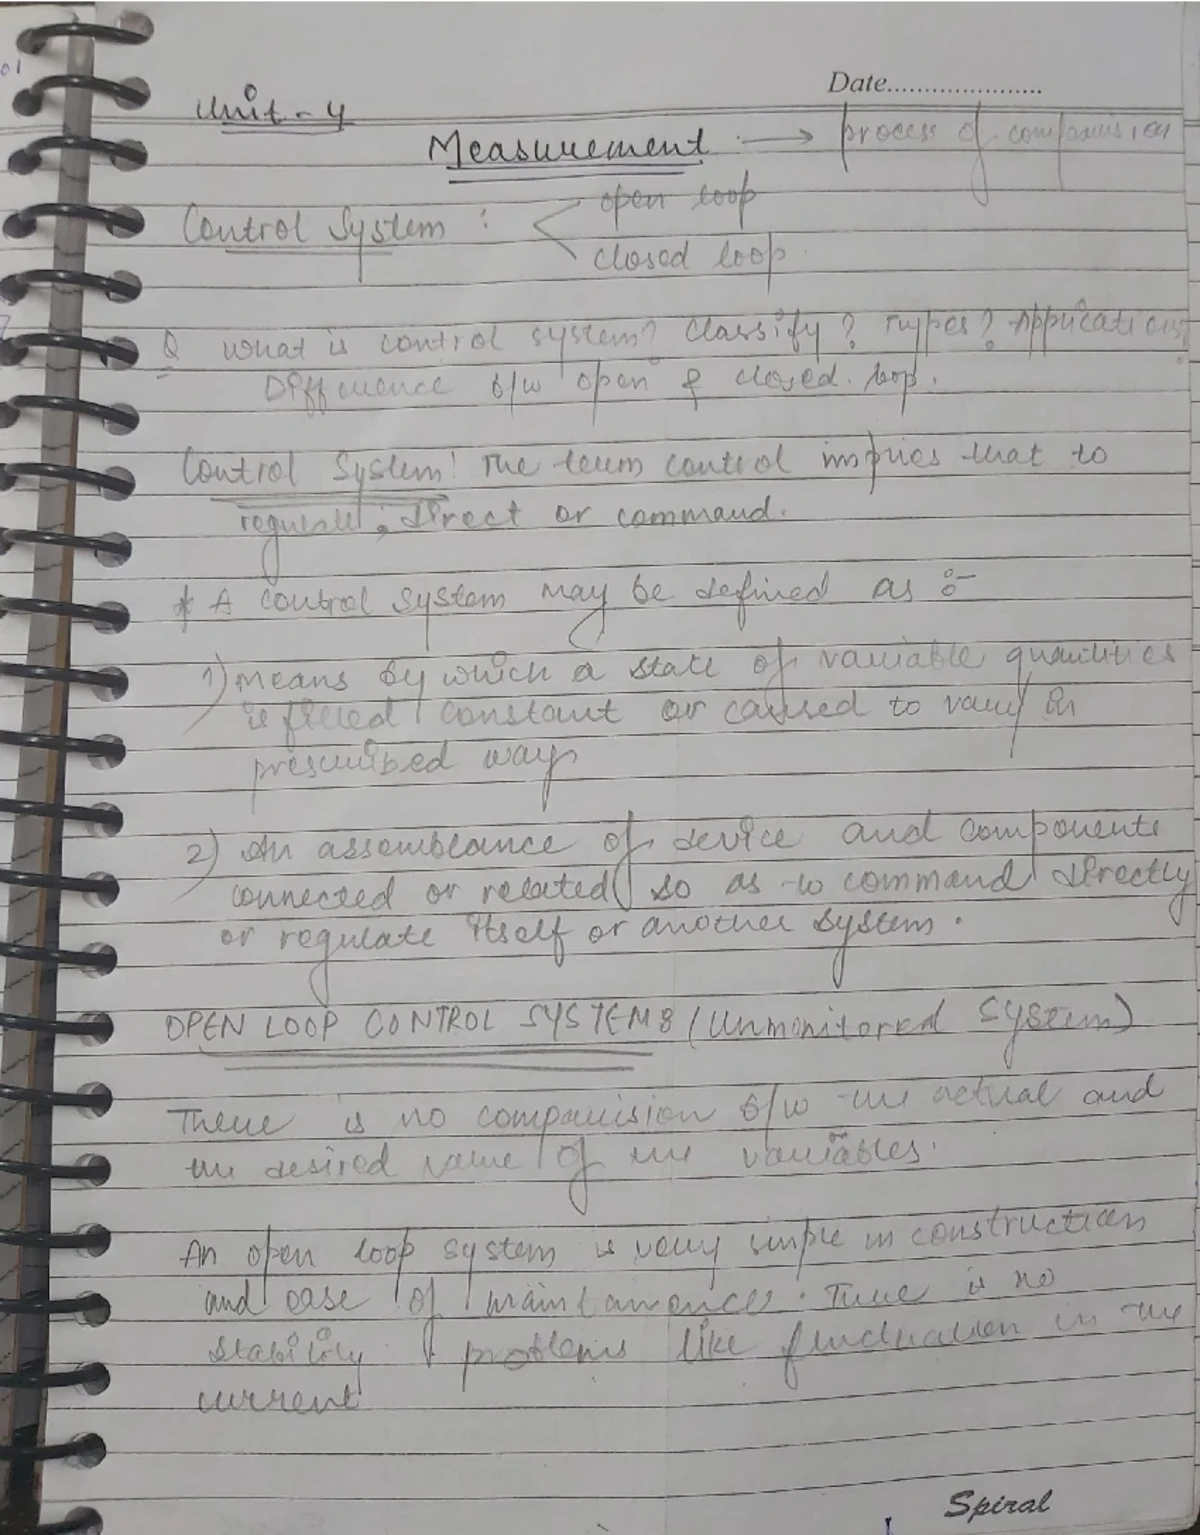 Date......................
Unit - 4
Measurement → process of comparision
Control System : open loop
closed loop
Q what is control system? Classify? Types? Applications
Difference b/w open & closed loop.
Control System: The term control implies that to
regulate, direct or command.
* A control system may be defined as :-
1) Means by which a state of variable quantities
is filled constant or caused to vary in
prescribed way
2) An assemblance of device and components
connected or related so as to command directly
or regulate itself or another system.
OPEN LOOP CONTROL SYSTEMS (Unmonitored System)
There is no comparision b/w the actual and
the desired value of the variables.
An open loop system is very simple in construction
and ease of maintanence. There is no
stability problems like fluctuation in the
current
Spiral